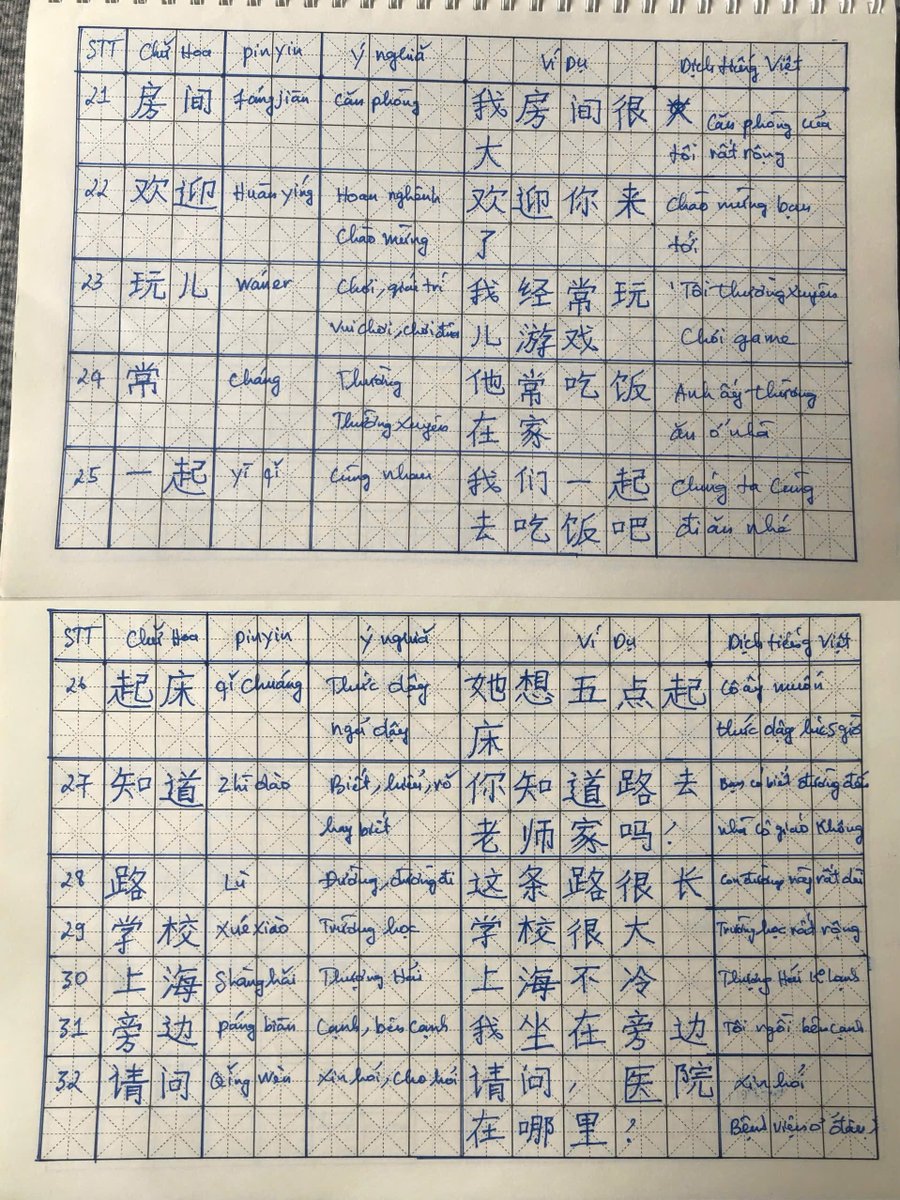 STT Chữ Hoa pinyin Ý nghĩa Ví Dụ Dịch tiếng Việt
21 房间 fángjiān Căn phòng 我房间很 Căn phòng của
大 tôi rất rộng
22 欢迎 Huānyíng Hoan nghênh 欢迎你来 Chào mừng bạn
Chào mừng 了 tới
23 玩儿 wáner Chơi, giải trí 我经常玩 Tôi thường xuyên
Vui chơi, chơi đùa 儿游戏 Chơi game
24 常 cháng Thường 他常吃饭 Anh ấy thường
Thường xuyên 在家 ăn ở nhà
25 一起 yī qǐ Cùng nhau 我们一起 Chúng ta cùng
去吃饭吧 đi ăn nhé
STT Chữ Hoa pinyin Ý nghĩa Ví Dụ Dịch tiếng Việt
26 起床 qǐ chuáng Thức dậy 她想五点起 Cô ấy muốn
ngủ dậy 床 thức dậy lúc 5 giờ
27 知道 Zhī dào Biết, hiểu, rõ 你知道路去 Bạn có biết đường đến
hay biết 老师家吗? nhà cô giáo không
28 路 Lù Đường, đường đi 这条路很长 Con đường này rất dài
29 学校 Xuéxiào Trường học 学校很大 Trường học rất rộng
30 上海 Shànghǎi Thượng Hải 上海不冷 Thượng Hải k lạnh
31 旁边 páng biān Cạnh, bên cạnh 我坐在旁边 Tôi ngồi bên cạnh
32 请问 Qǐng wèn Xin hỏi, cho hỏi 请问, 医院 Xin hỏi
在哪里? Bệnh viện ở đâu?